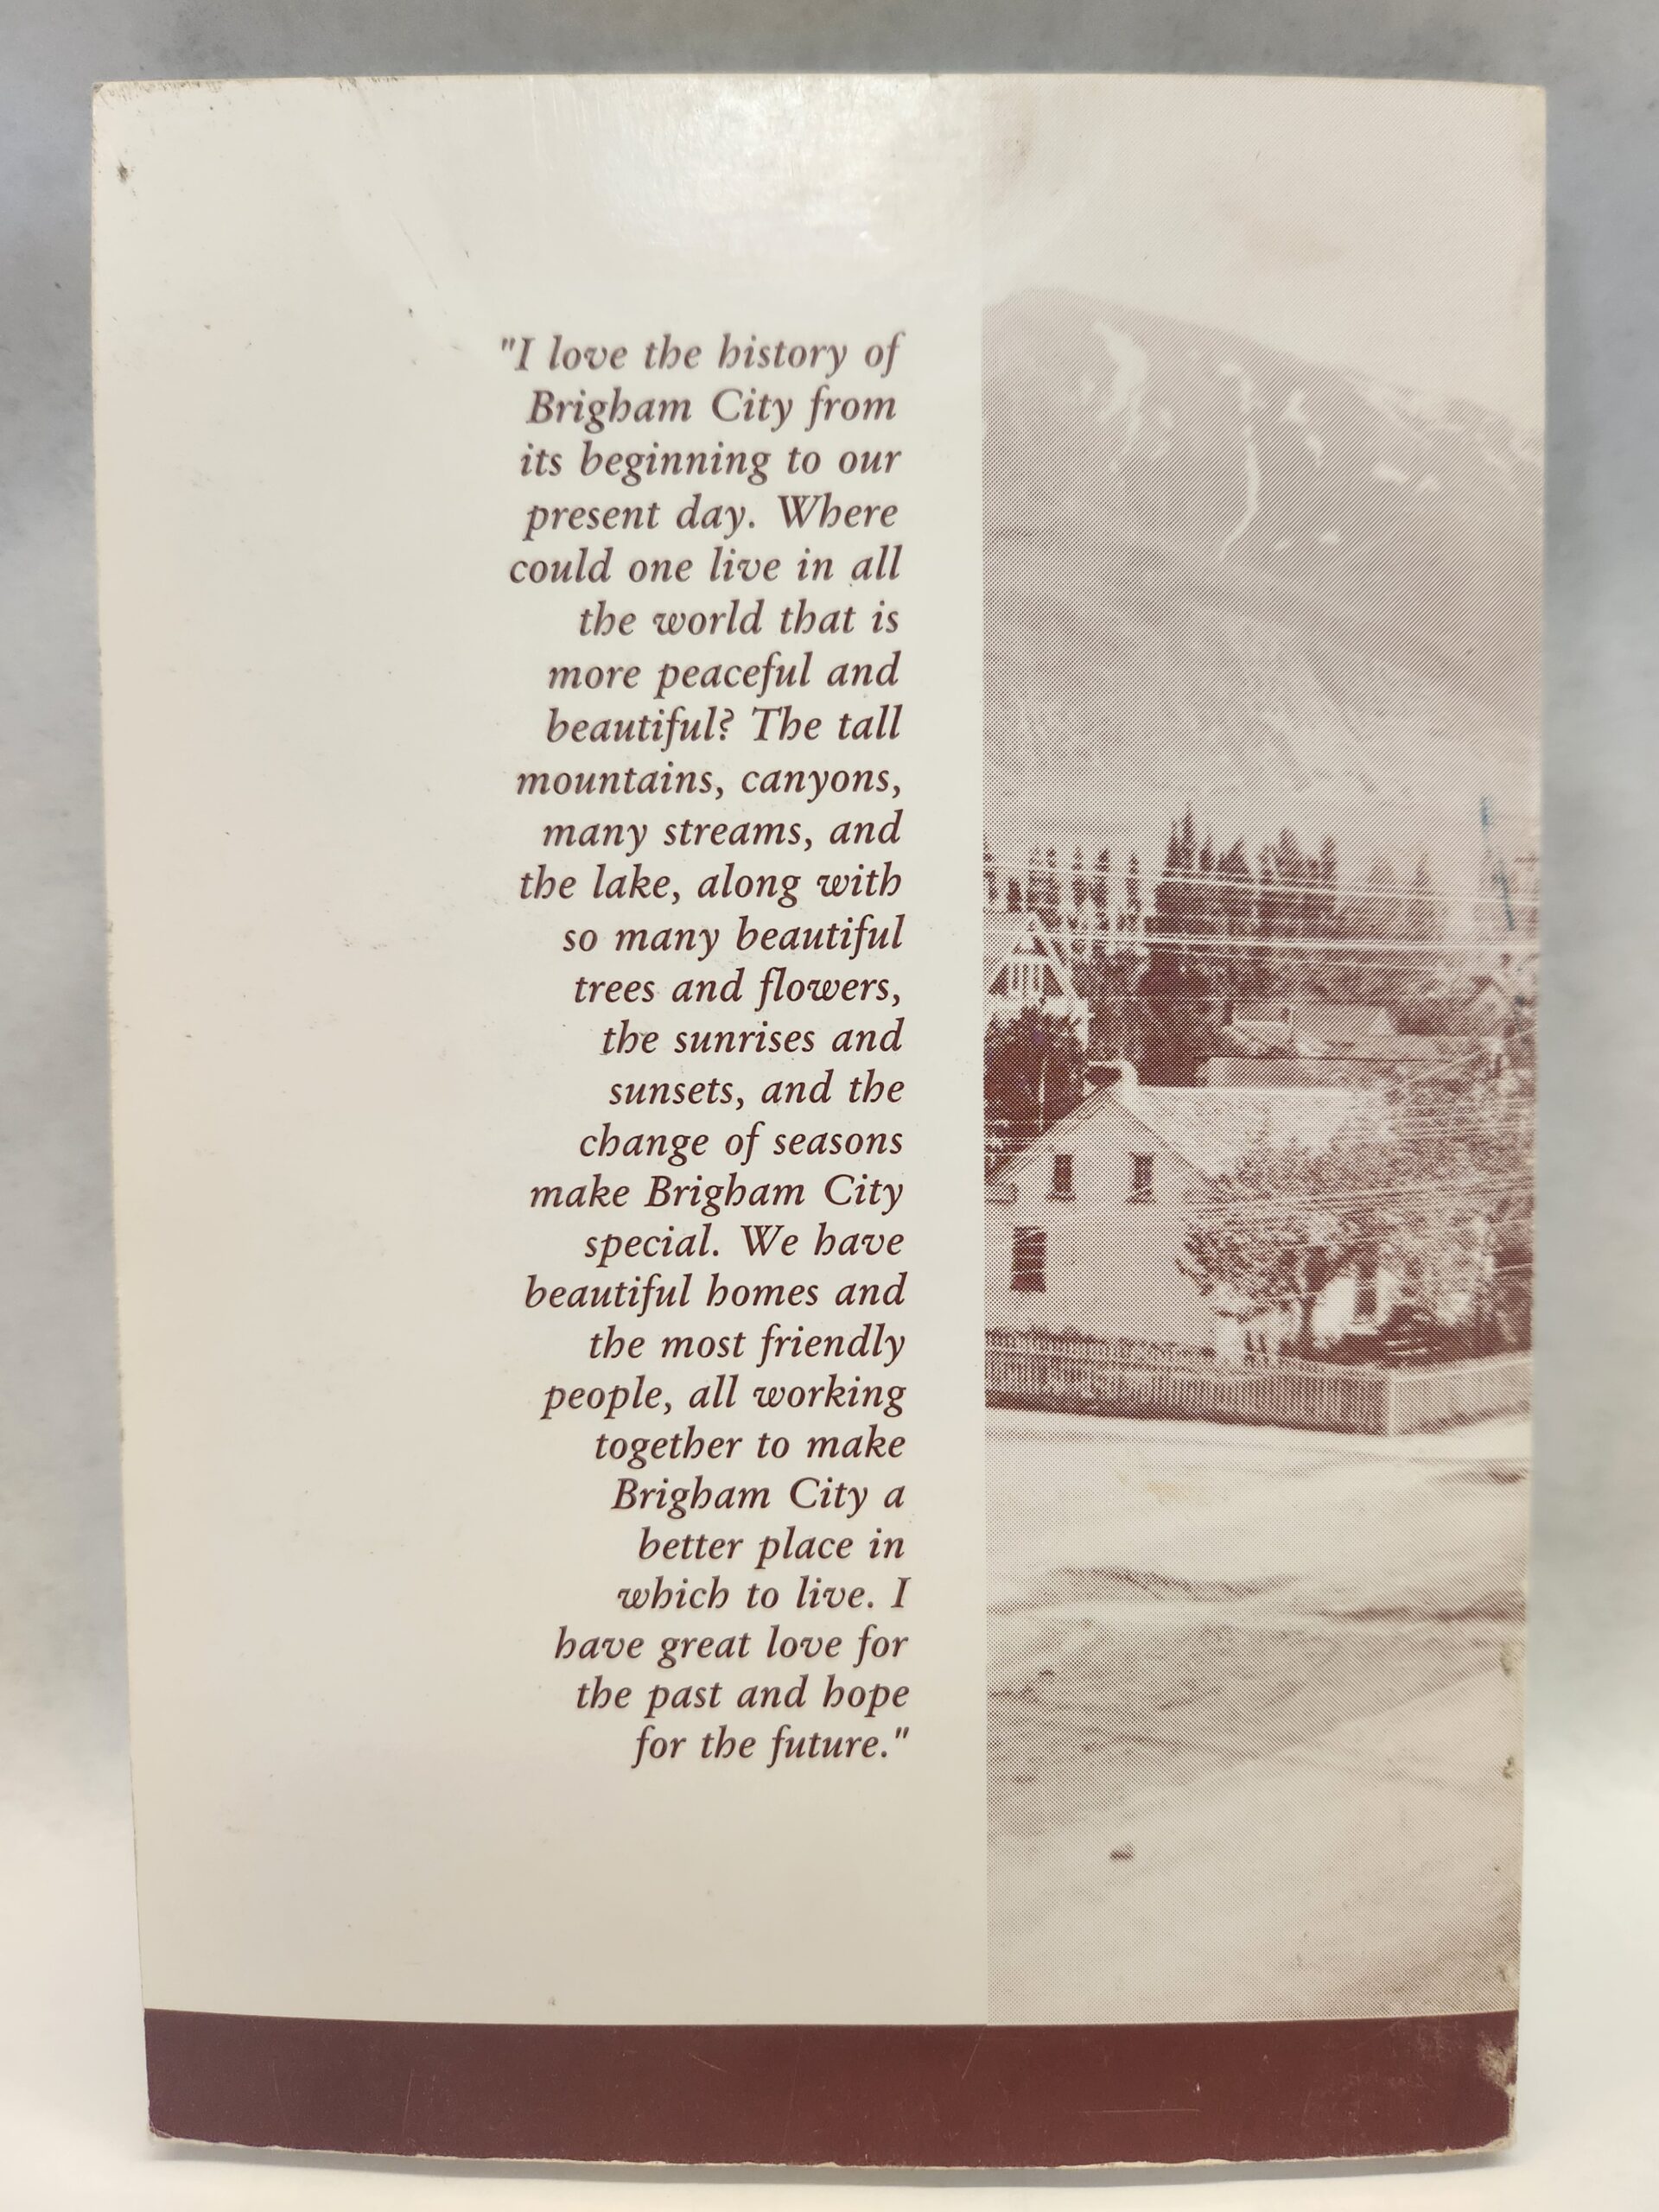 "I love the history of
Brigham City from
its beginning to our
present day. Where
could one live in all
the world that is
more peaceful and
beautiful? The tall
mountains, canyons,
many streams, and
the lake, along with
so many beautiful
trees and flowers,
the sunrises and
sunsets, and the
change of seasons
make Brigham City
special. We have
beautiful homes and
the most friendly
people, all working
together to make
Brigham City a
better place in
which to live. I
have great love for
the past and hope
for the future."